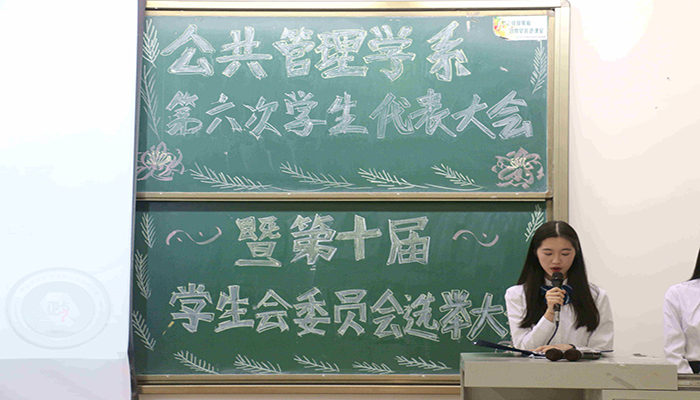 公共管理学系
第六次学生代表大会
暨第十届
学生会委员会选举大